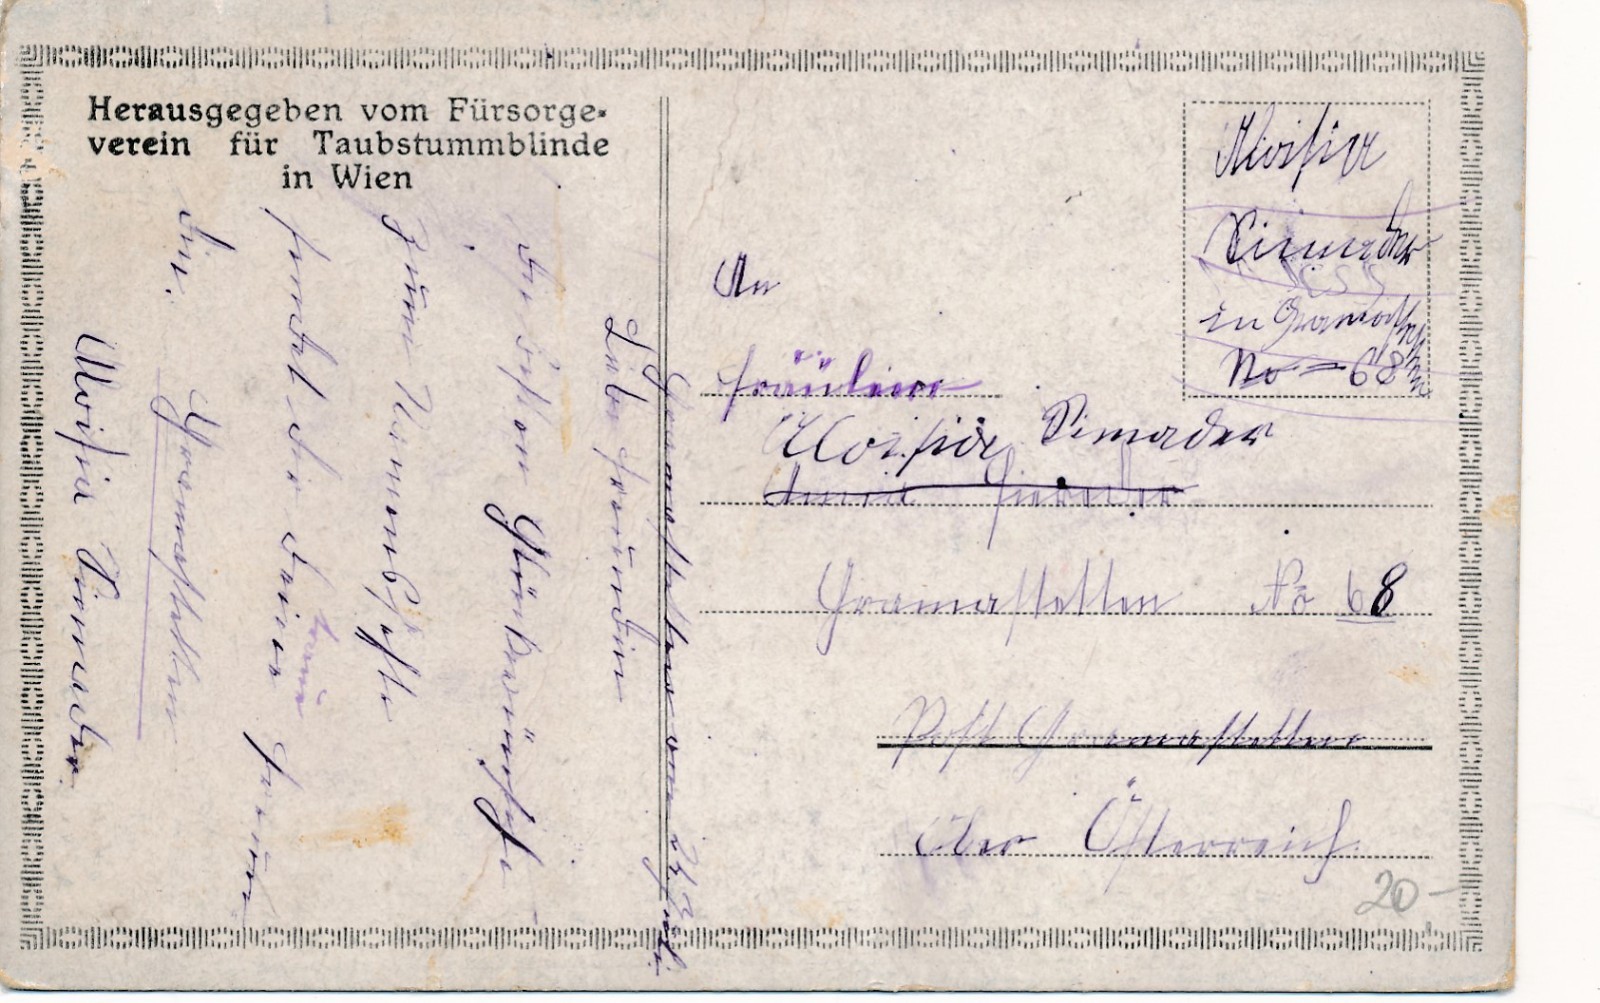 Herausgegeben vom Fürsorge-
verein für Taubstummblinde
in Wien
Gramastetten am
Liebe Freundin
Die besten Glückwünsche
zum Namensfeste
sendet dir deine Freun-
din.
Gramastetten
Aloisia Simader.
Aloisia
Simader
in Gramastetten
No = 68
An
Fräulein
Aloisia Simader
Gramastetten No 68
Post Gramastetten
Ober Österreich.
20-